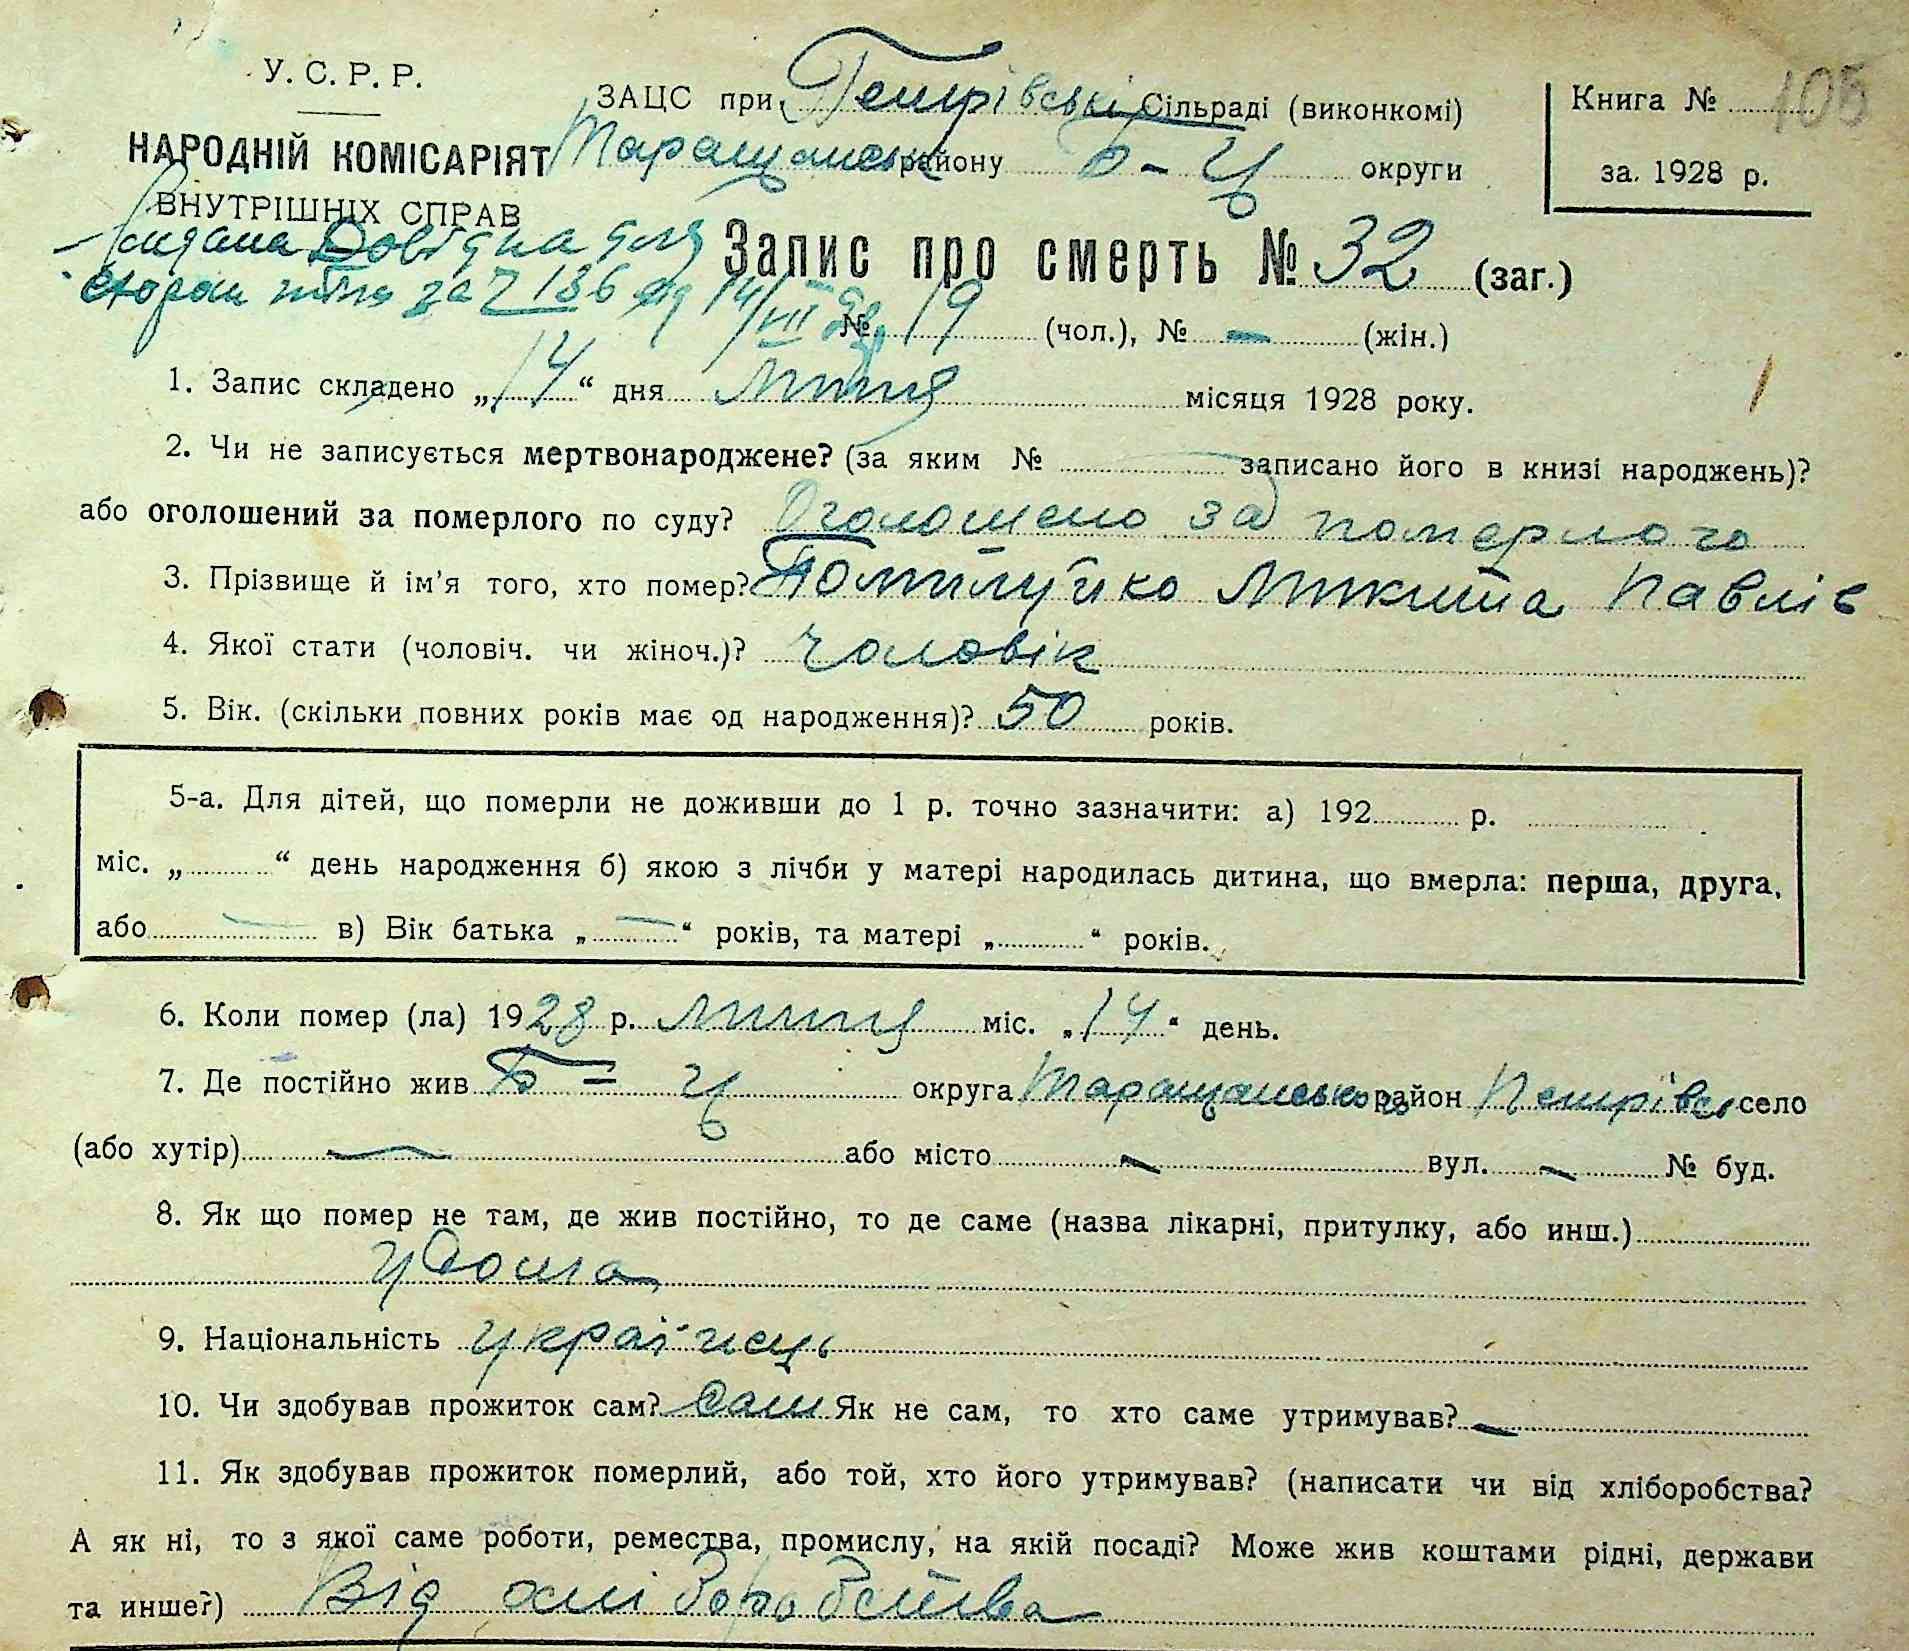 У. С. Р. Р.
НАРОДНІЙ КОМІСАРІЯТ
ВНУТРІШНІХ СПРАВ
ЗАЦС при Петрівські Сільраді (виконкомі)
Таращанськ району Б-Ц округи
Книга № 105
за 1928 р.
Видана Довідка для
за № 136 від 14/VII 28 р
Запис про смерть № 32 (заг.)
№ 19 (чол.), № — (жін.)
1. Запис складено „14“ дня Липця місяця 1928 року.
2. Чи не записується мертвонароджене? (за яким № записано його в книзі народжень)?
або оголошений за померлого по суду? Оголошено за померлого
3. Прізвище й ім’я того, хто помер? Помилуйко Микита Павлів
4. Якої стати (чоловіч. чи жіноч.)? Чоловік
5. Вік. (скільки повних років має од народження)? 50 років.
5-а. Для дітей, що померли не доживши до 1 р. точно зазначити: а) 192 р.
міс. „ “ день народження б) якою з лічби у матері народилась дитина, що вмерла: перша, друга,
або — в) Вік батька „—“ років, та матері „ “ років.
6. Коли помер (ла) 1928 р. липця міс. „14“ день.
7. Де постійно жив Б=Ц округа Таращанського район Петрівс село
(або хутір) — або місто — вул. — № буд.
8. Як що помер не там, де жив постійно, то де саме (назва лікарні, притулку, або инш.)
у Дома
9. Національність українець
10. Чи здобував прожиток сам? Сам Як не сам, то хто саме утримував? —
11. Як здобував прожиток померлий, або той, хто його утримував? (написати чи від хліборобства?
А як ні, то з якої саме роботи, ремества, промислу, на якій посаді? Може жив коштами рідні, держави
та инше?) Від хліборобства